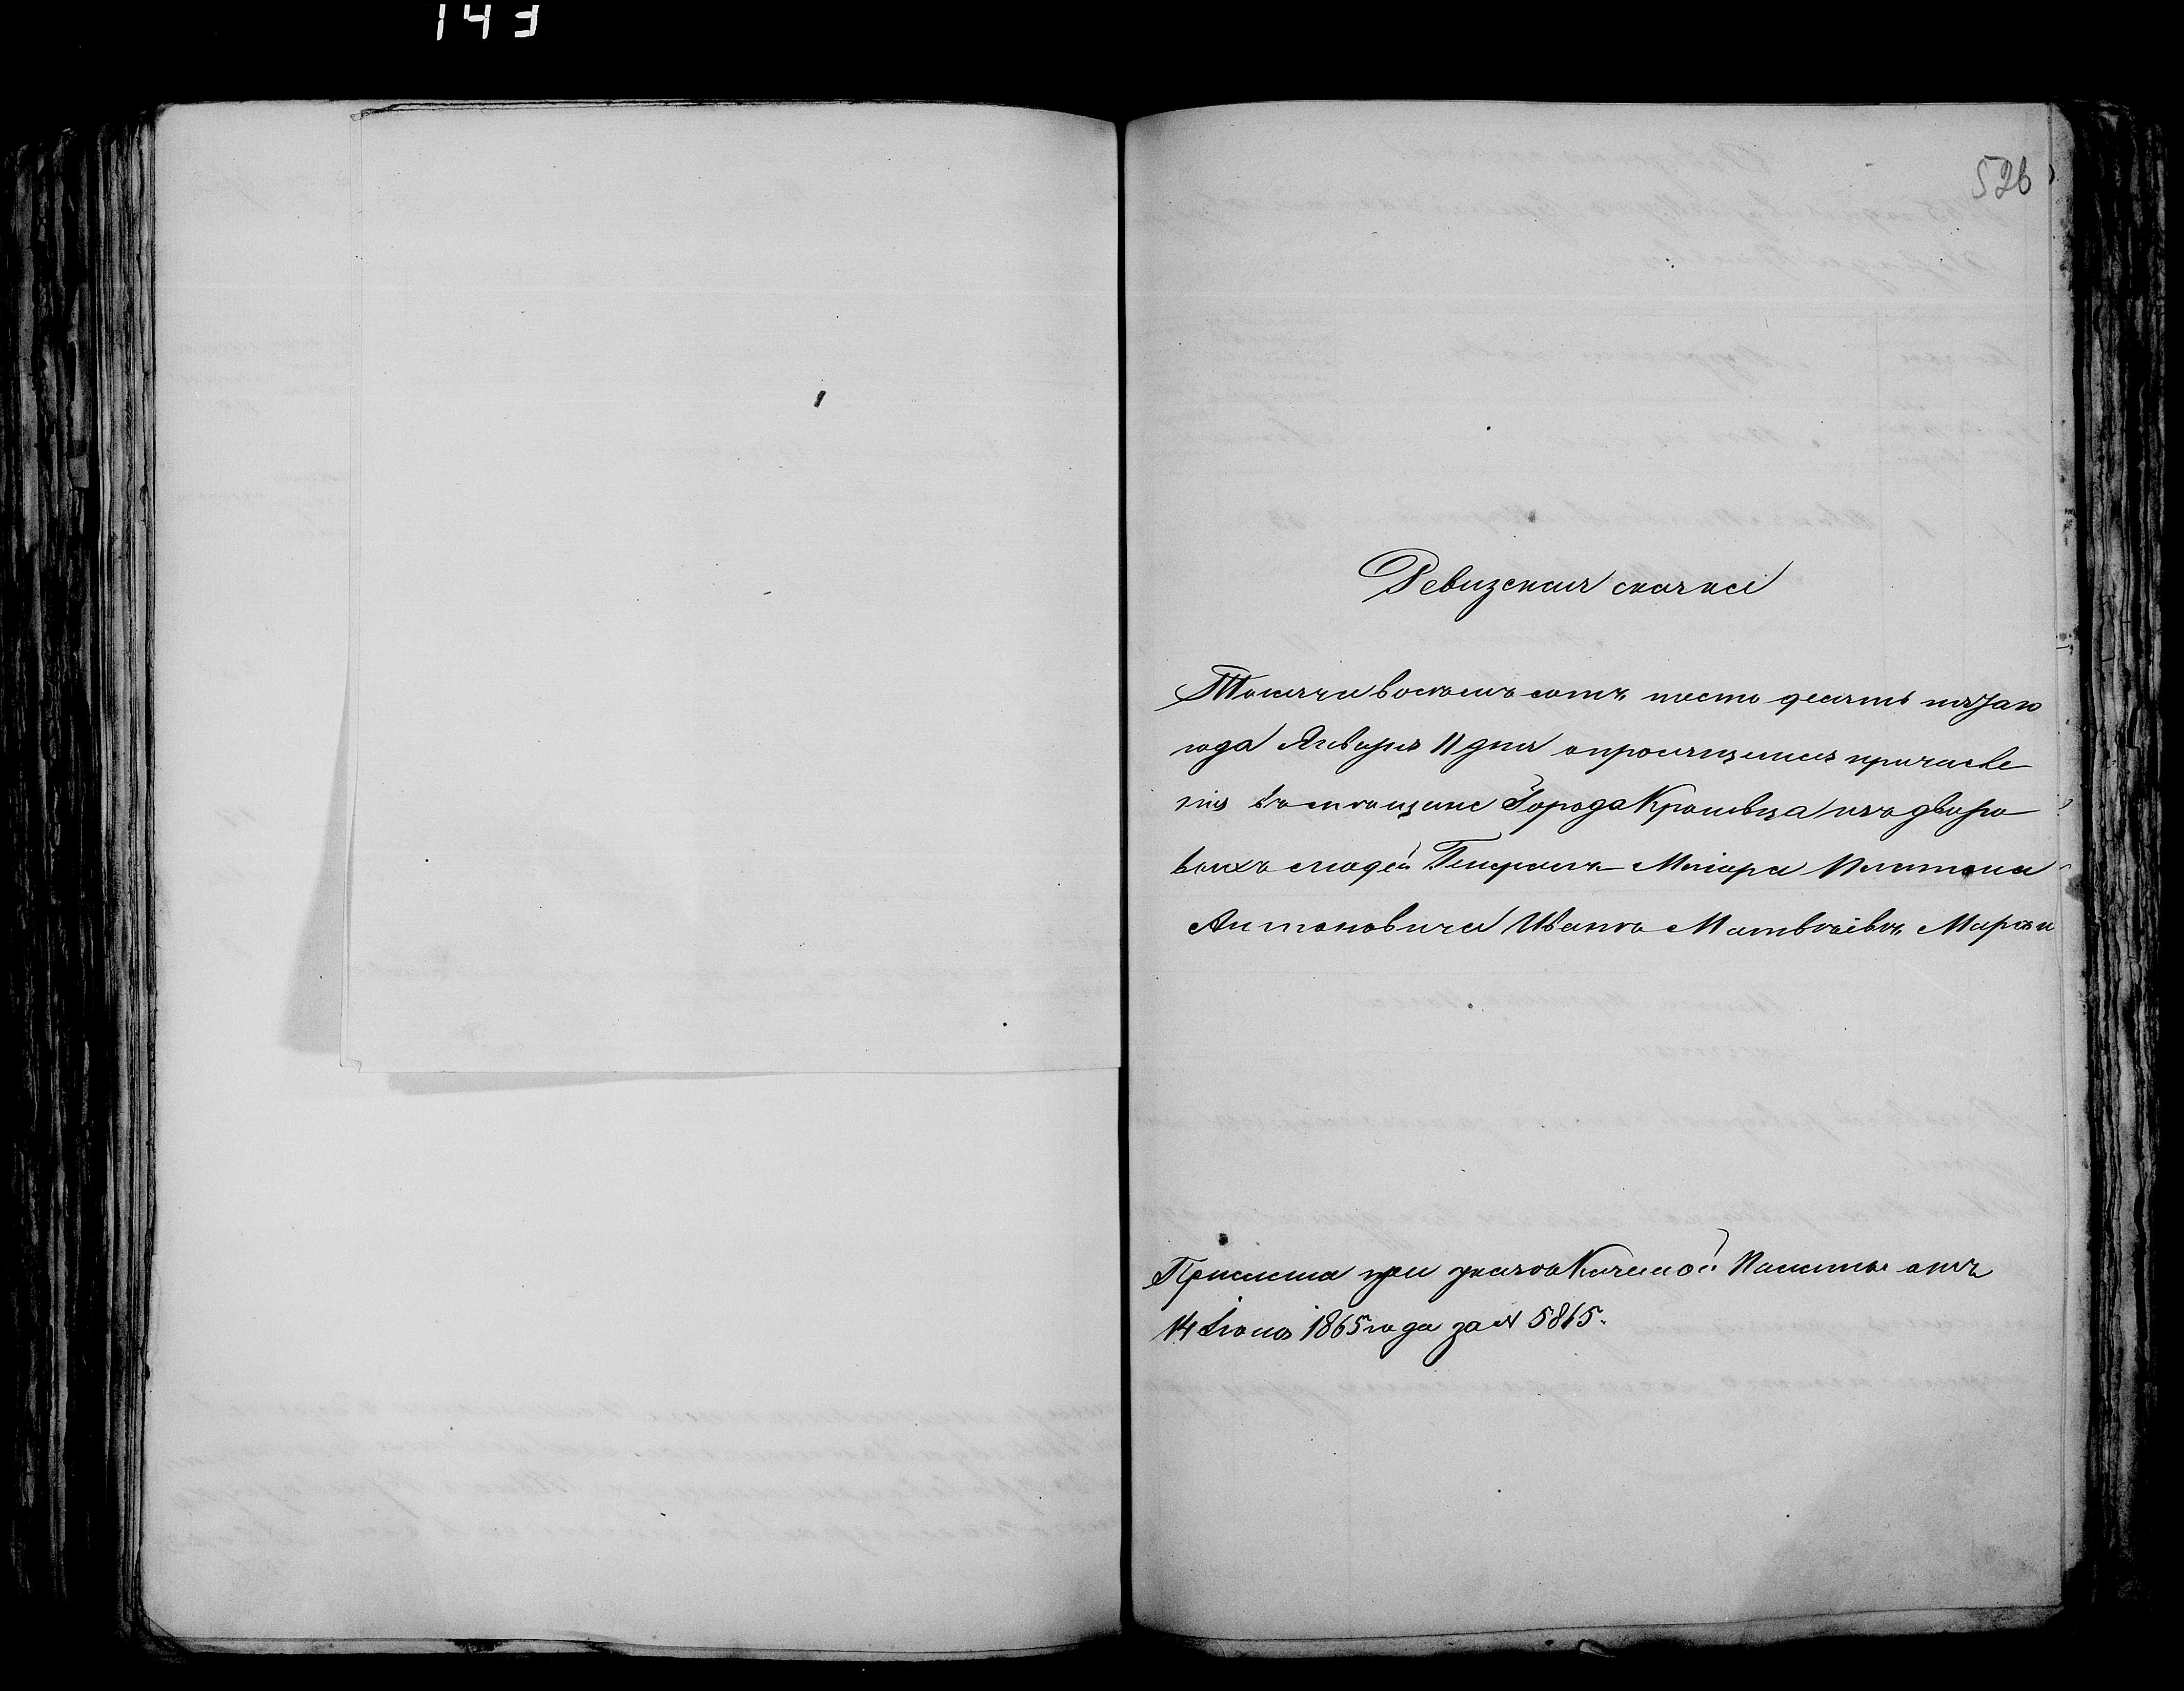 143
526
Ревизская сказка
Тысяча восемь сотъ шесть десять пятаго
года Января 11 дня о просящемся причисле
нія въ мещане Города Кролевца изъ дворо
выхъ людей Генералъ Маіора Платона
Антоновича Иванъ Матвѣевъ
Прислана при указѣ Казенной Палаты отъ
14 Іюня 1865 года за № 5865.